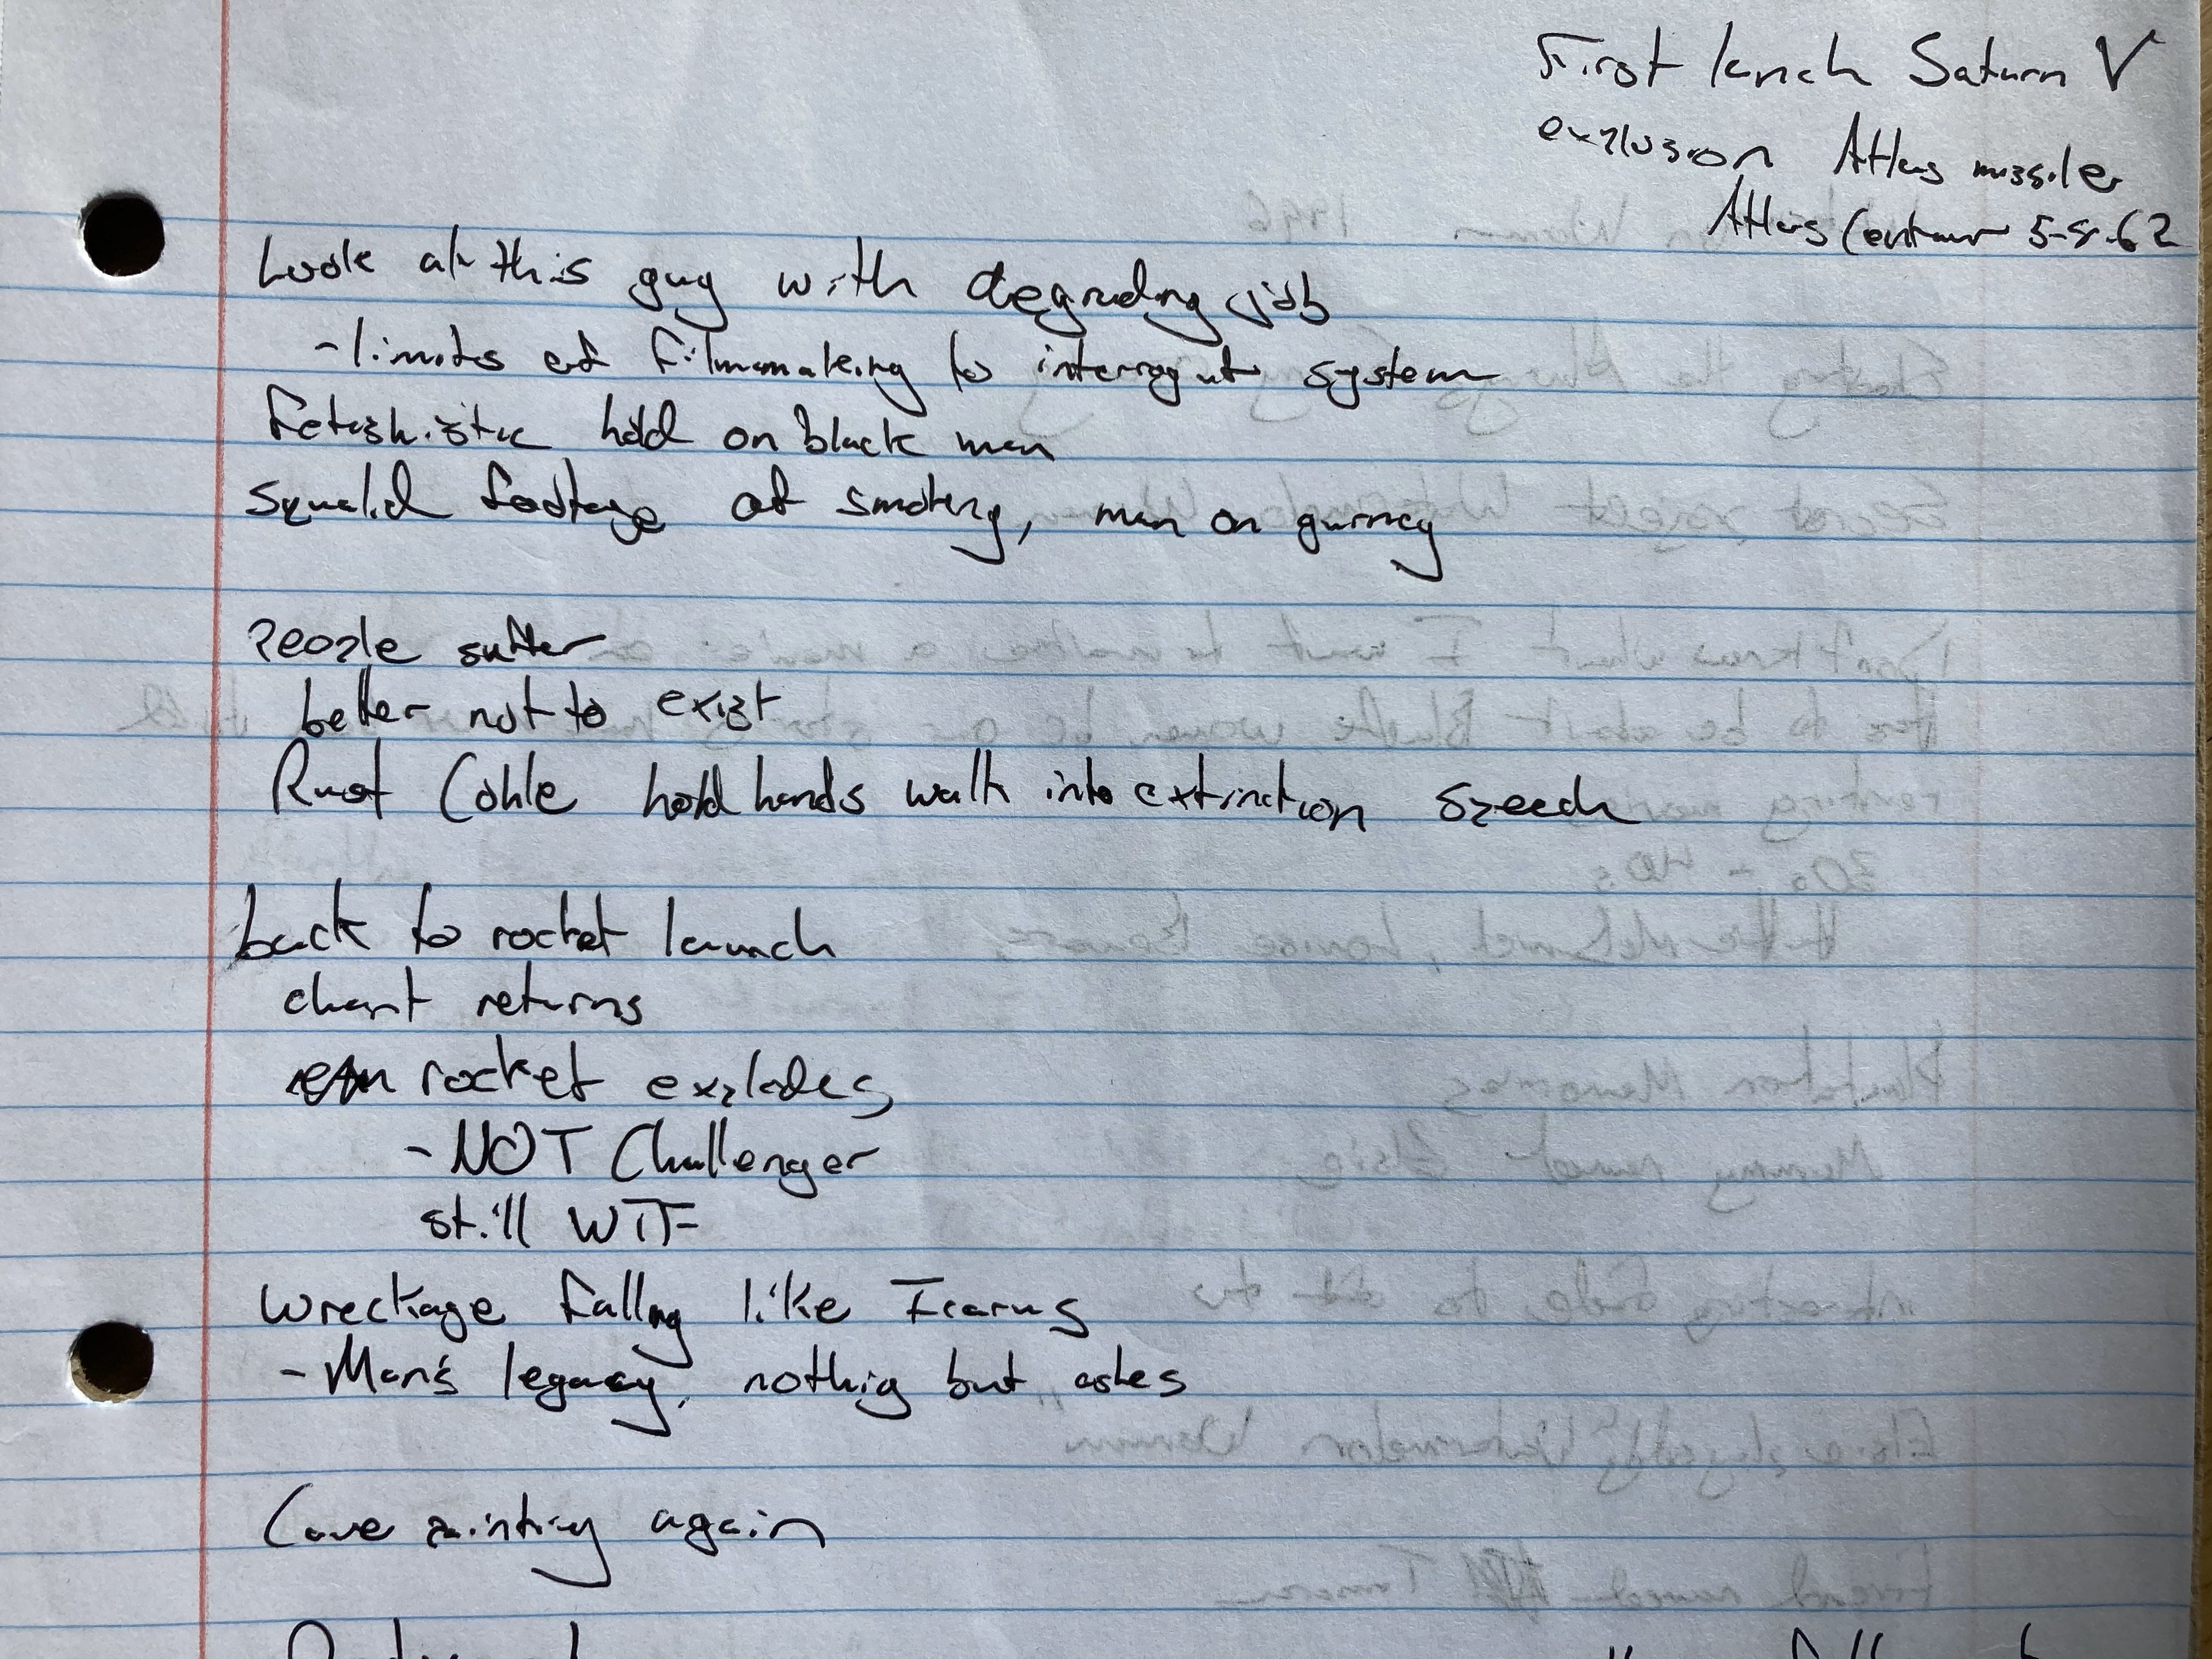 First lanch Saturn V
explosion Atlas missile
Atlas Centaur 5-8-62
Look at this guy with degrading job
-limits of filmmaking to interrogate system
Fetishistic hold on black man
Squalid footage of smoking, man on gurney
People suffer
better not to exist
Rust Cohle hold hands walk into extinction speech
back to rocket launch
chant returns
rocket explodes
-NOT Challenger
still WTF
Wreckage falling like Icarus
-Man's legacy, nothig but ashes
Cave painting again